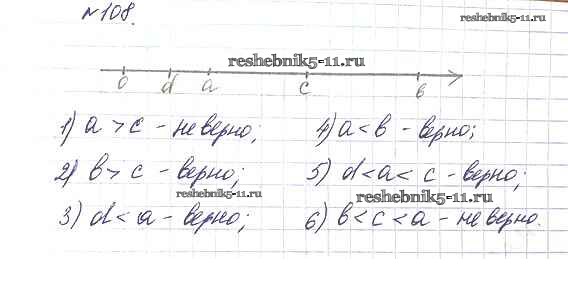 №108.
reshebnik5-11.ru
reshebnik5-11.ru
0 d a c в
1) a > c - не верно; 4) a < в - верно;
2) в > c - верно; 5) d < a < c - верно;
reshebnik5-11.ru
reshebnik5-11.ru
3) d < a - верно; 6) в < c < a - не верно.